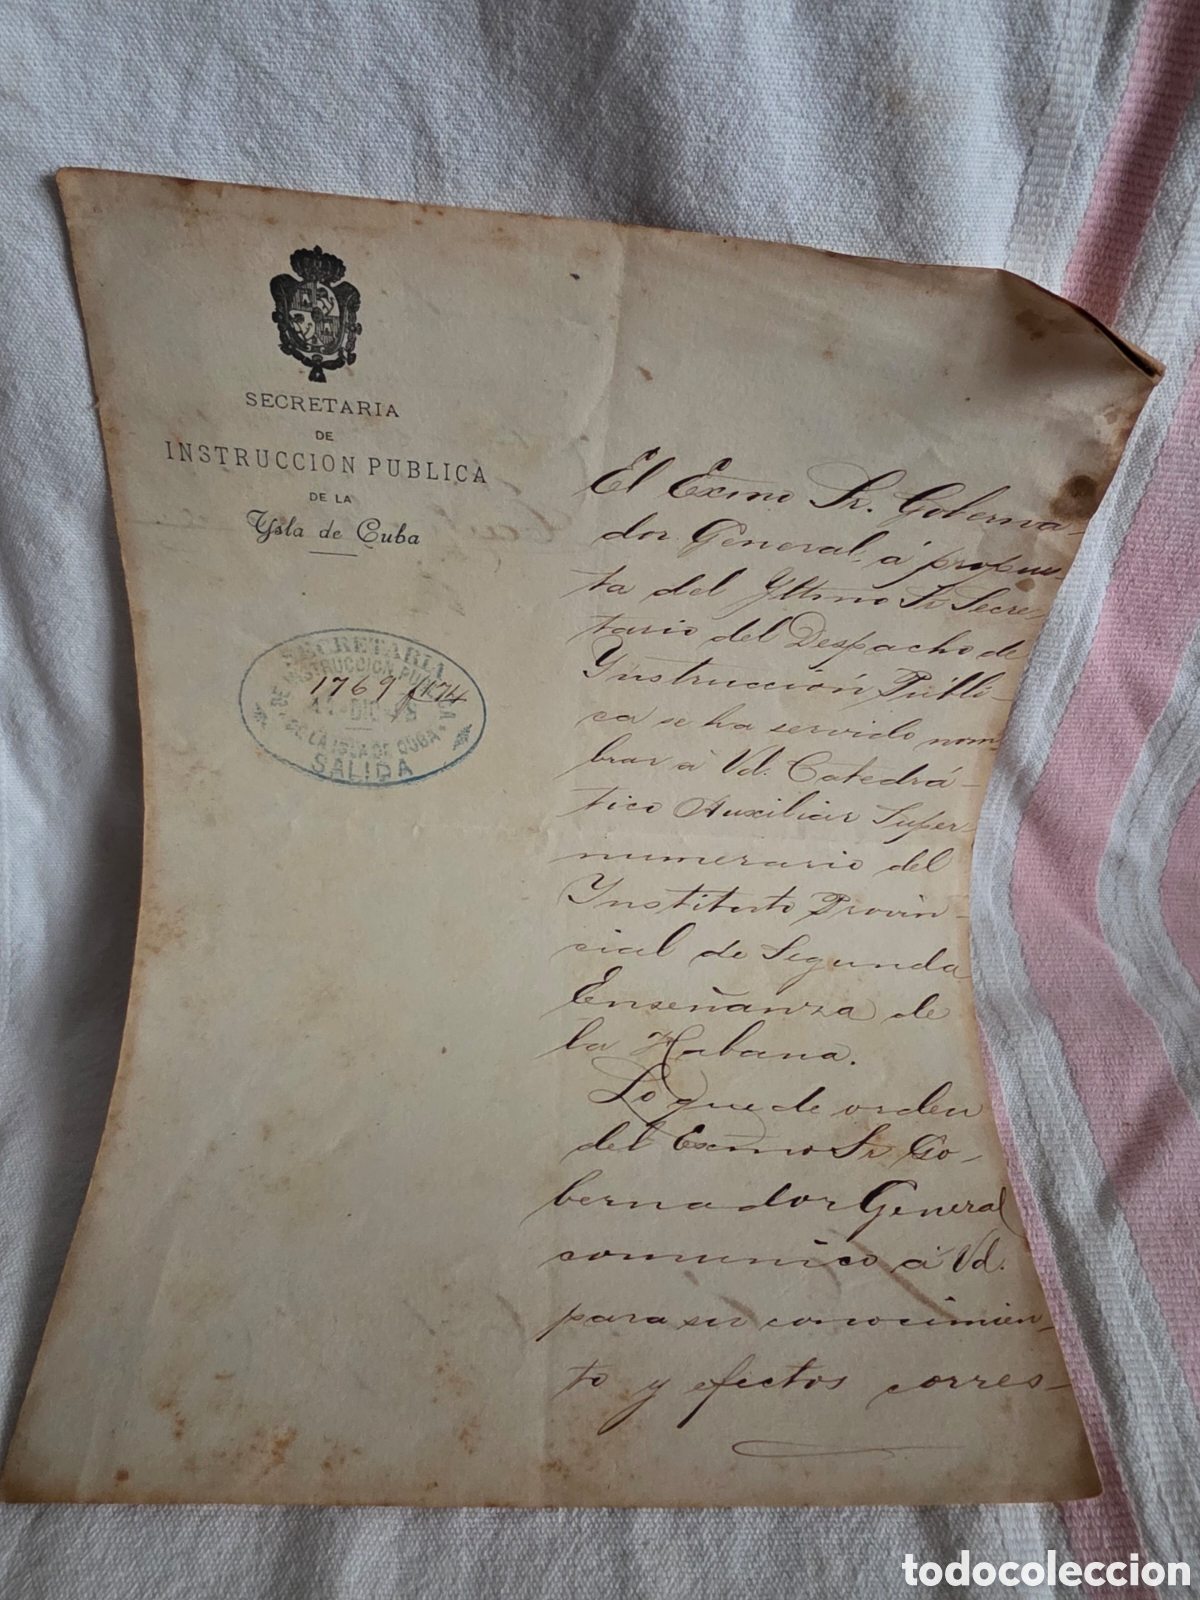 SECRETARIA
DE
INSTRUCCION PUBLICA
DE LA
Ysla de Cuba
SECRETARIA
DE INSTRUCCION PUBLICA
1769
DE LA ISLA DE CUBA
SALIDA
El Exmo Sr. Goberna-
dor General, á propues-
ta del Yltmo Sr Secre-
tario del Despacho de
Ynstrucción Públi-
ca se ha servido nom-
brar á Vd. Catedrá-
tico Auxiliar Super-
numerario del
Ynstituto Provin-
cial de Segunda
Enseñanza de
la Habana.
Lo que de orden
del Exmo Sr Go-
bernador General
comunico á Vd.
para su conocimien-
to y efectos corres-
todocoleccion